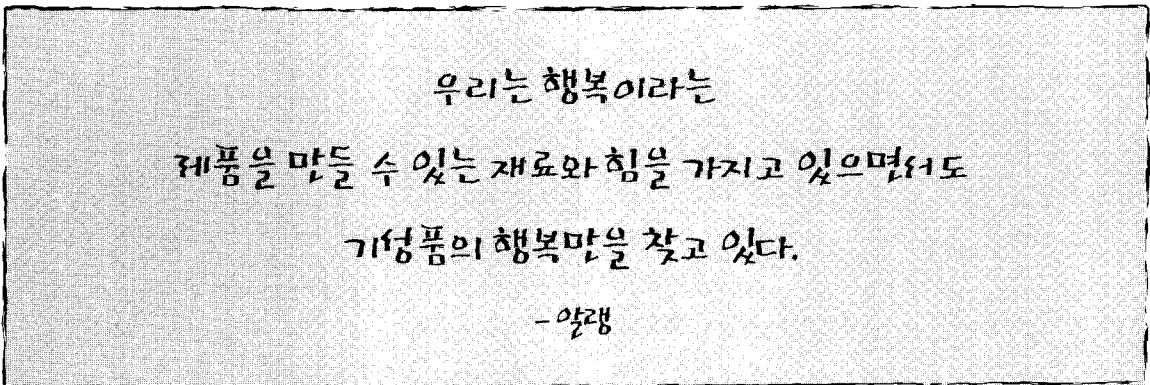 우리는 행복이라는
제품을 만들 수 있는 재료와 힘을 가지고 있으면서도
기성품의 행복만을 찾고 있다.
-알랭